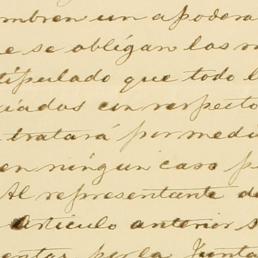 mbren un apodera
e se obligan las
tipulado que todo l
ciadas con respecto
tratará por medi
en ningun caso p
Al representante de
articulo anterior s
entas por la Junta